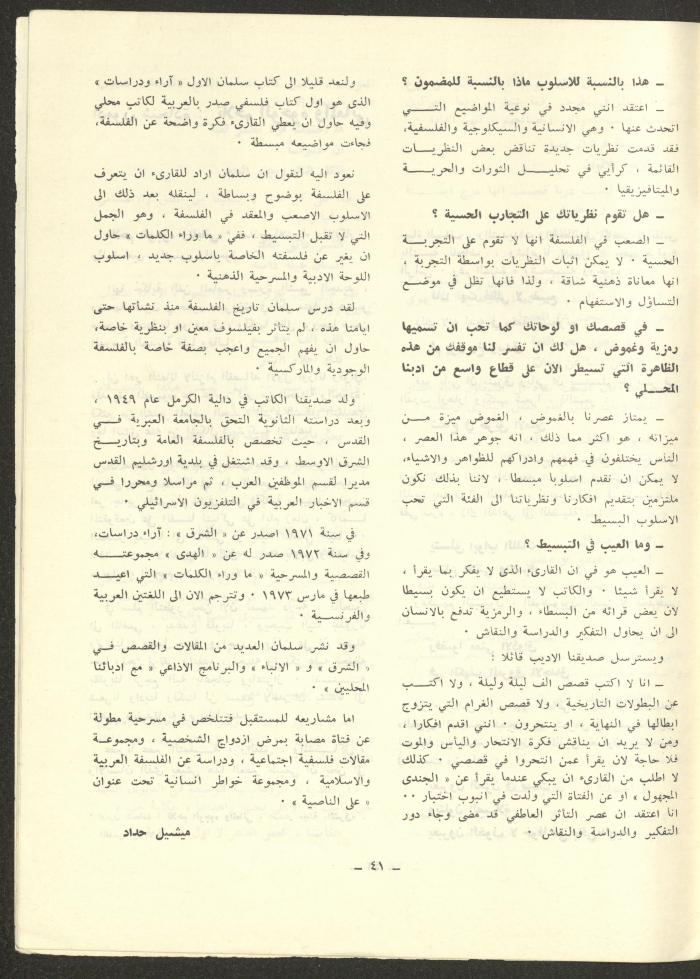 ـ هذا بالنسبة للاسلوب ماذا بالنسبة للمضمون ؟
ـ اعتقد انني مجدد في نوعية المواضيع التـــي
اتحدث عنها ٠ وهي الانسانية والسيكلوجية والفلسفية،
فقد قدمت نظريات جديدة تناقض بعض النظريـــات
القائمة ، كرأيي في تحليــــل الثورات والحريـــة
والميتافيزيقيا ٠
ـ هل تقوم نظرياتك على التجارب الحسية ؟
ـ الصعب في الفلسفة انها لا تقوم على التجربــة
الحسية ٠ لا يمكن اثبات النظريات بواسطة التجربة ،
انها معاناة ذهنية شاقة ، ولذا فانها تظل في موضـــع
التساؤل والاستفهام ٠
ـ في قصصك او لوحاتك كما تحب ان تسميها
رمزية وغموض ، هل لك ان تفسر لنا موقفك من هذه
الظاهرة التي تسيطر الان على قطاع واسع من ادبنا
المحـــلي ؟
ـ يمتاز عصرنا بالغموض ، الغموض ميزة مـــن
ميزاته ، هو اكثر مما ذلك ، انه جوهر هذا العصر ،
الناس يختلفون في فهمهم وادراكهم للظواهر والاشياء،
لا يمكن ان نقدم اسلوبا مبسطا ، لاننا بذلك نكون
ملتزمين بتقديم افكارنا ونظرياتنا الى الفئة التي تحب
الاسلوب البسيط ٠
ـ وما العيب في التبسيط ؟
ـ العيب هو في ان القارىء الذى لا يفكر بما يقرأ ،
لا يقرأ شيئا ٠ والكاتب لا يستطيع ان يكون بسيطا
لان بعض قرائه من البسطاء ، والرمزية تدفع بالانسان
الى ان يحاول التفكير والدراسة والنقاش ٠
ويسترسل صديقنا الاديب قائلا :
ـ انا لا اكتب قصص الف ليلة وليلة ، ولا اكتـــب
عن البطولات التاريخية ، ولا قصص الغرام التي يتزوج
ابطالها في النهاية ، او ينتحرون ٠ انني اقدم افكارا ،
ومن لا يريد ان يناقش فكرة الانتحار واليأس والموت
فلا حاجة لان يقرأ عمن انتحروا في قصصي ٠ كذلك
لا اطلب من القارىء ان يبكي عندما يقرأ عن « الجندى
المجهول » او عن الفتاة التي ولدت في انبوب اختبار ٠٠
انا اعتقد ان عصر التأثر العاطفي قد مضى وجاء دور
التفكير والدراسة والنقاش ٠
ولنعد قليلا الى كتاب سلمان الاول « آراء ودراسات »
الذى هو اول كتاب فلسفي صدر بالعربية لكاتب محلي
وفيه حاول ان يعطي القارىء فكرة واضحة عن الفلسفة،
فجاءت مواضيعه مبسطة ٠
نعود اليه لنقول ان سلمان اراد للقارىء ان يتعرف
على الفلسفة بوضوح وبساطة ، لينقله بعد ذلك الى
الاسلوب الاصعب والمعقد في الفلسفة ، وهو الجمل
التي لا تقبل التبسيط ، ففي « ما وراء الكلمات » حاول
ان يعبر عن فلسفته الخاصة باسلوب جديد ، اسلوب
اللوحة الادبية والمسرحية الذهنية ٠
لقد درس سلمان تاريخ الفلسفة منذ نشأتها حتى
ايامنا هذه ، لم يتأثر بفيلسوف معين او بنظرية خاصة،
حاول ان يفهم الجميع واعجب بصفة خاصة بالفلسفة
الوجودية والماركسية ٠
ولد صديقنا الكاتب في دالية الكرمل عام ١٩٤٩ ،
وبعد دراسته الثانوية التحق بالجامعة العبرية فـــي
القدس ، حيث تخصص بالفلسفة العامة وبتاريـــخ
الشرق الاوسط ، وقد اشتغل في بلدية اورشليم القدس
مديرا لقسم الموظفين العرب ، ثم مراسلا ومحررا فـــي
قسم الاخبار العربية في التلفزيون الاسرائيلي ٠
في سنة ١٩٧١ اصدر عن « الشرق » : آراء دراسات،
وفي سنة ١٩٧٢ صدر له عن « الهدى » مجموعتـــه
القصصية والمسرحية « ما وراء الكلمات » التي اعيـــد
طبعها في مارس ١٩٧٣ ٠ وتترجم الان الى اللغتين العربية
والفرنســية ٠
وقد نشر سلمان العديد من المقالات والقصص فـــي
« الشرق » و « الانباء » والبرنامج الاذاعي « مع ادبائنا
المحليين » ٠
اما مشاريعه للمستقبل فتتلخص في مسرحية مطولة
عن فتاة مصابة بمرض ازدواج الشخصية ، ومجموعــة
مقالات فلسفية اجتماعية ، ودراسة عن الفلسفة العربية
والاسلامية ، ومجموعة خواطر انسانية تحت عنوان
« على الناصية » ٠
ميشيل حداد
ـ ٤١ ـ